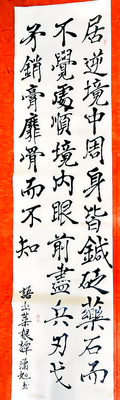 居逆境中周身皆鍼砭藥石而
不覺處順境內眼前盡兵刃戈
矛銷膏靡骨而不知
語出菜根譚